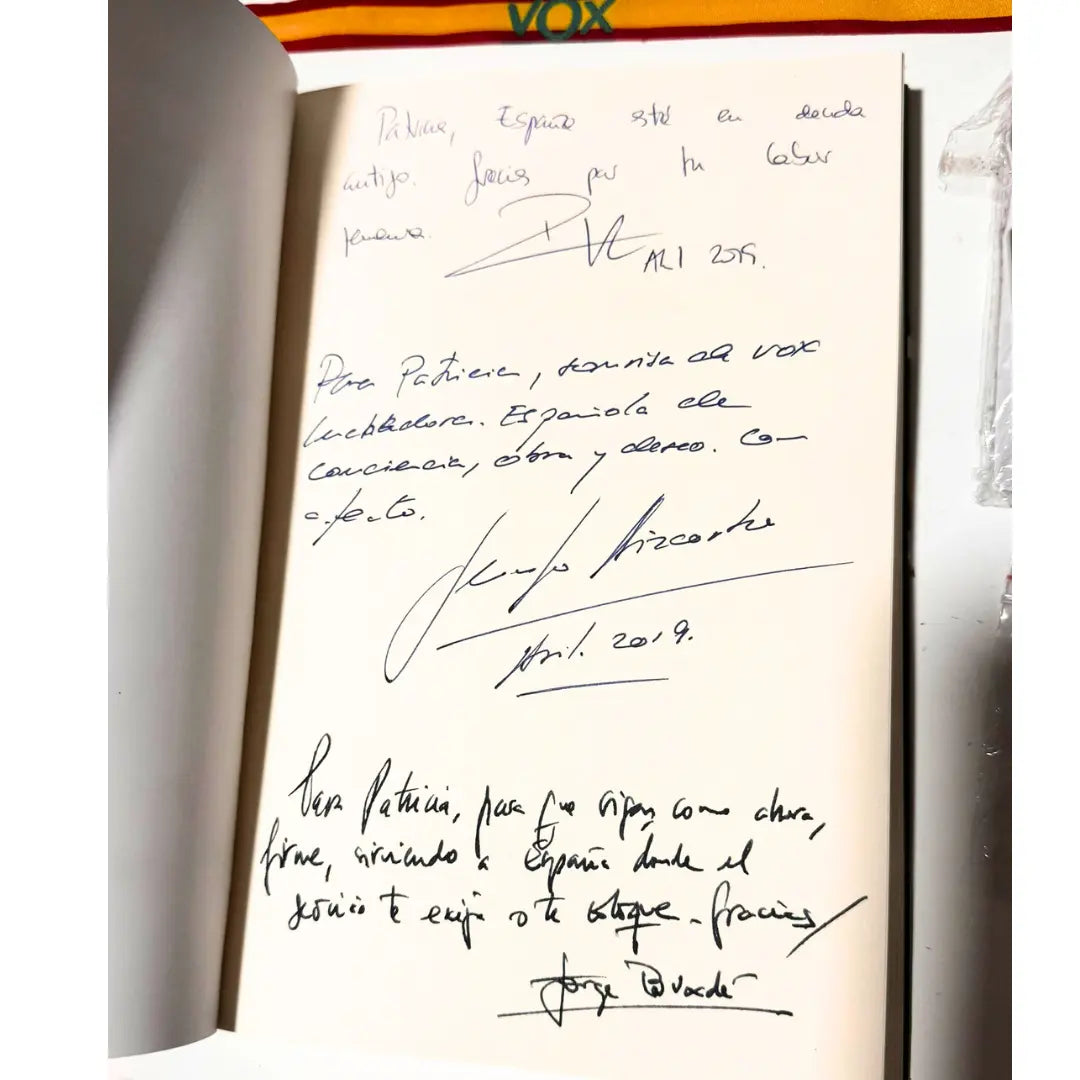 VOX
Patricia, España está en deuda
contigo. Gracias por tu labor
ABRIL 2019.
Para Patricia, sonrisa de VOX
luchadora. Española de
conciencia, obra y deseo. Con
afecto.
Abril. 2019.
Para Patricia, para que sigas como ahora,
firme, sirviendo a España donde el
servicio te exija o te coloque. Gracias
Jorge Buxadé